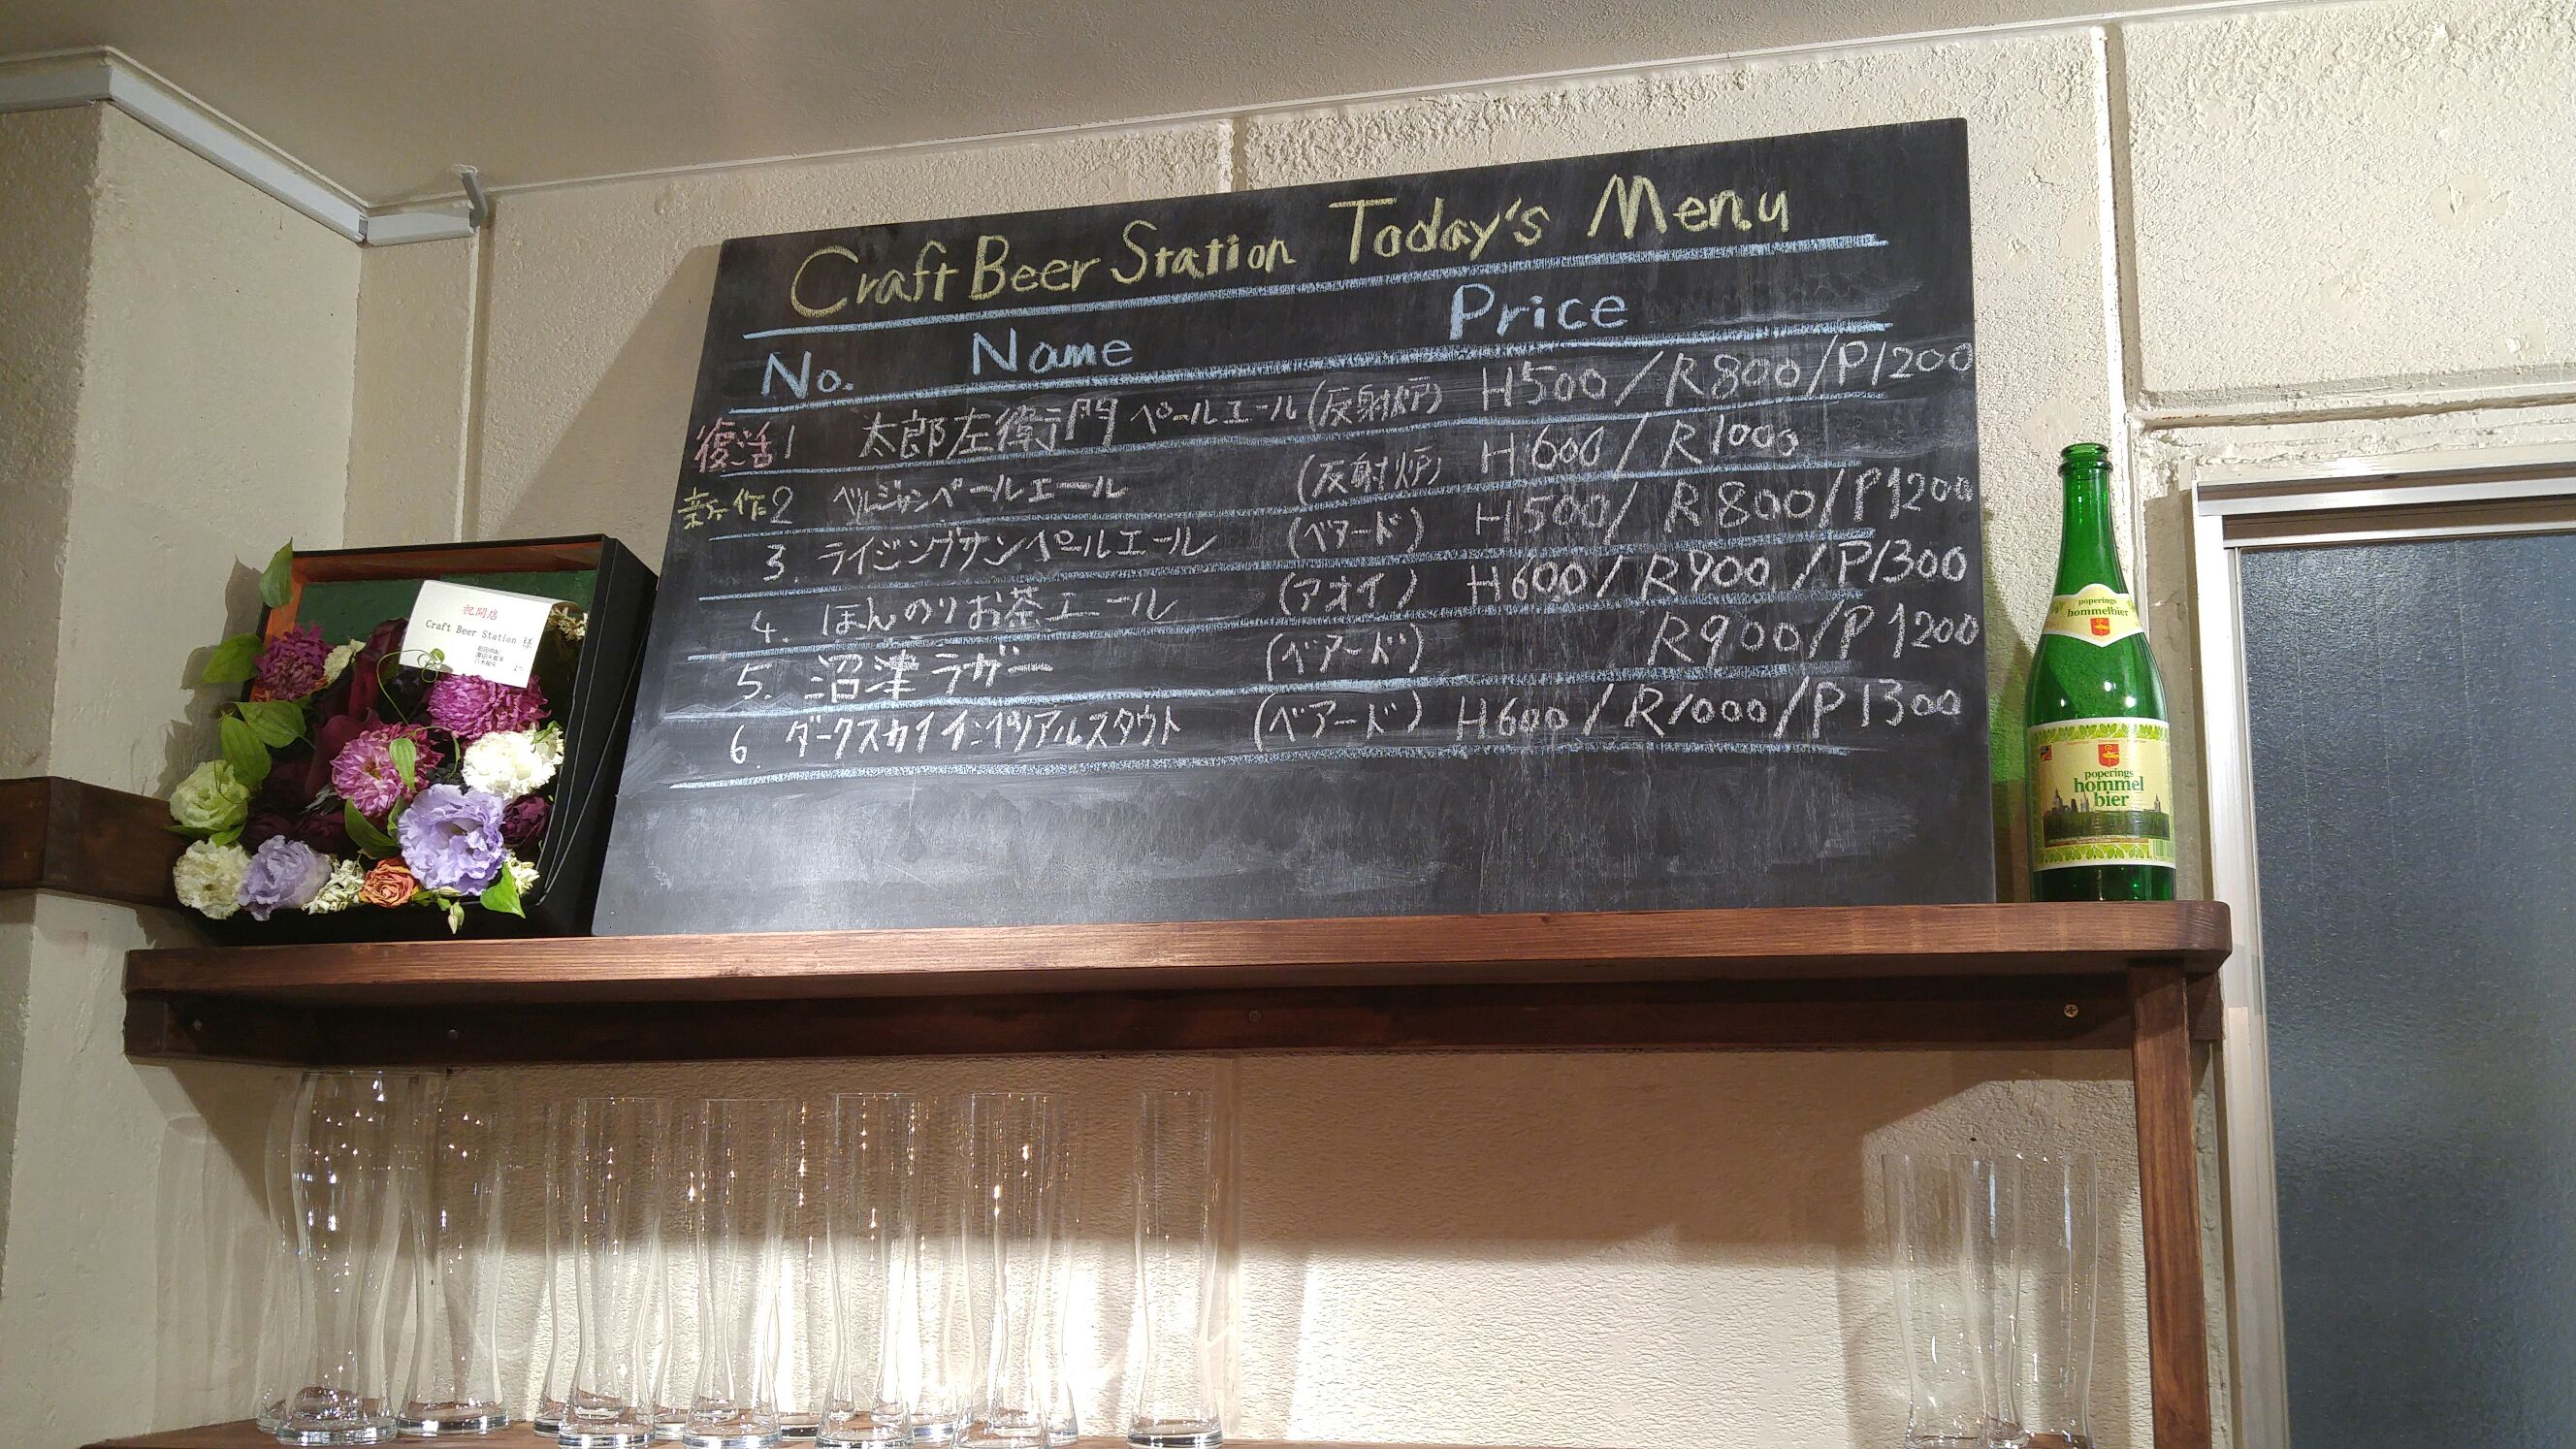 Craft Beer Station Today's Menu
No. Name Price
復活 1 太郎左衛門 ペールエール (反射炉) H500/R800/P1200
新作 2 ベルジャンペールエール (反射炉) H600/R1000
3. ライジングサンペールエール (ベアード) H500/R800/P1200
4. ほんのりお茶エール (アオイ) H600/R900/P1300
5. 沼津ラガー (ベアード) R900/P1200
6. ダークスカイインペリアルスタウト (ベアード) H600/R1000/P1300
祝開店
Craft Beer Station 様
より
poperings
hommelbier
poperings
hommel
bier